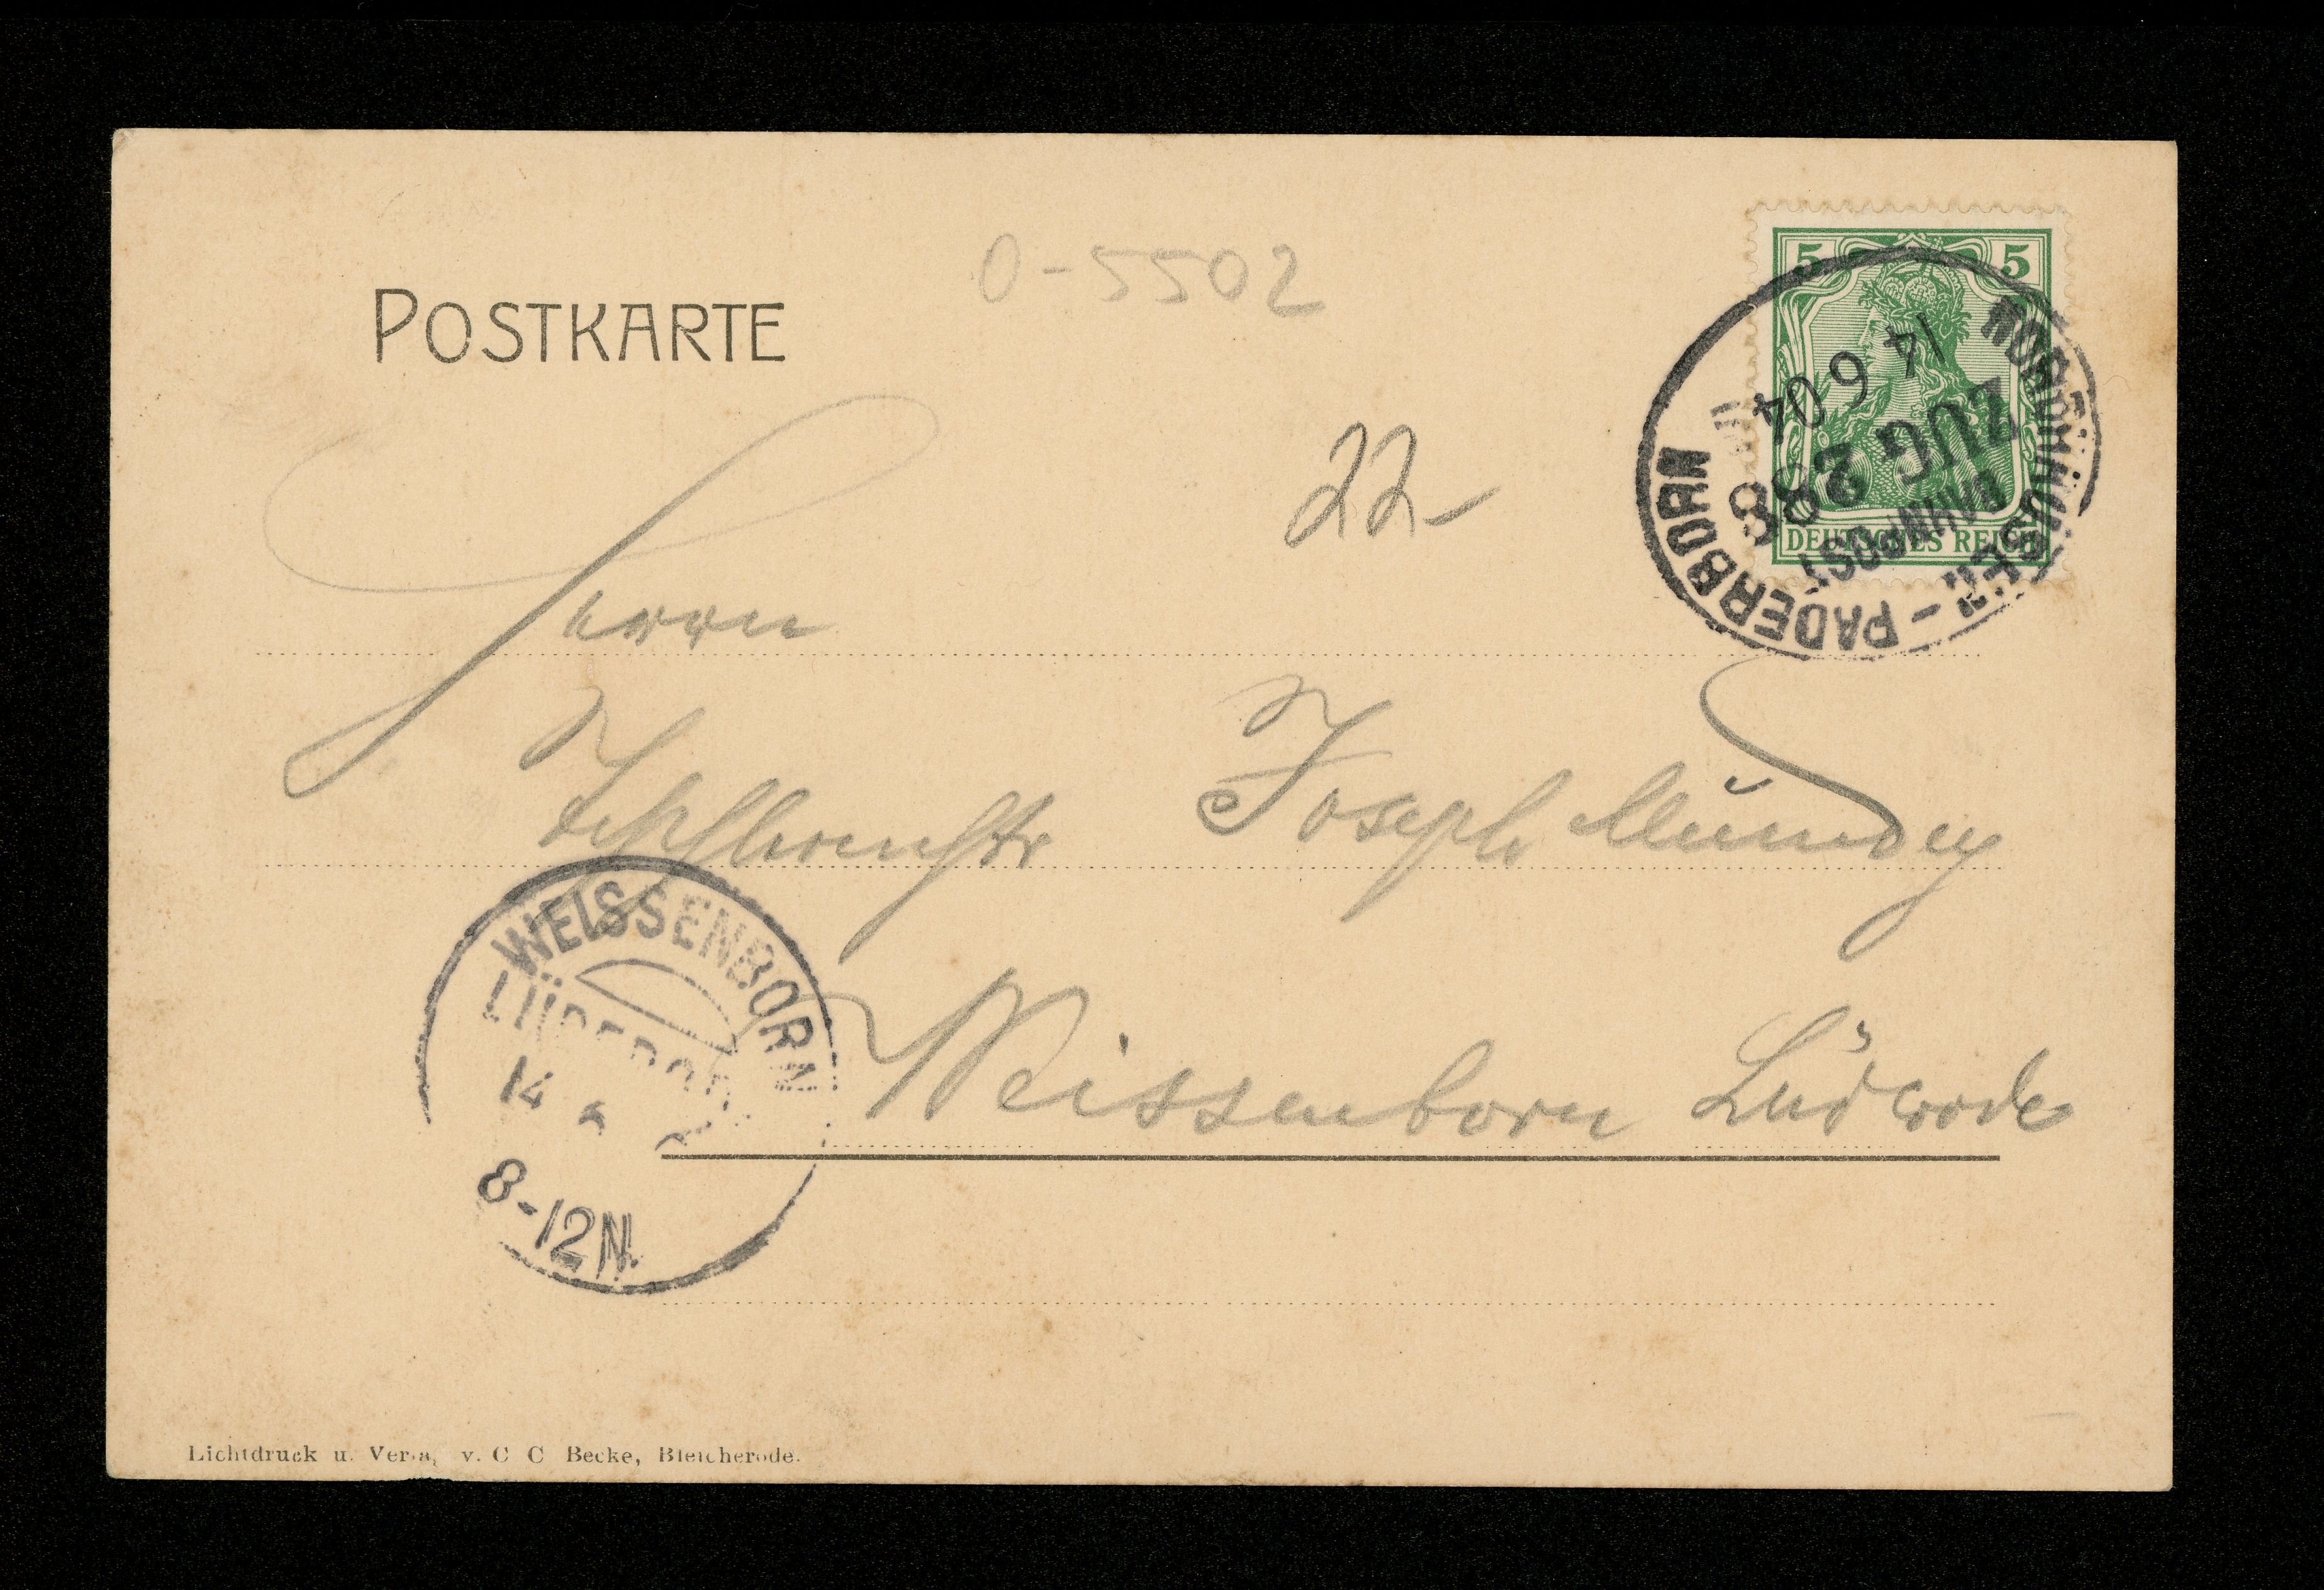 POSTKARTE
0-5502
5 5
DEUTSCHES REICH
NORDHAUSEN - PADERBORN
BAHNPOST
ZUG 288
14 6 04
22-
Herrn
Joseph
Weissenborn Lüderode
WEISSENBORN
LÜDERODE
14
8-12N.
Lichtdruck u. Verlag v. C C Becke, Bleicherode.